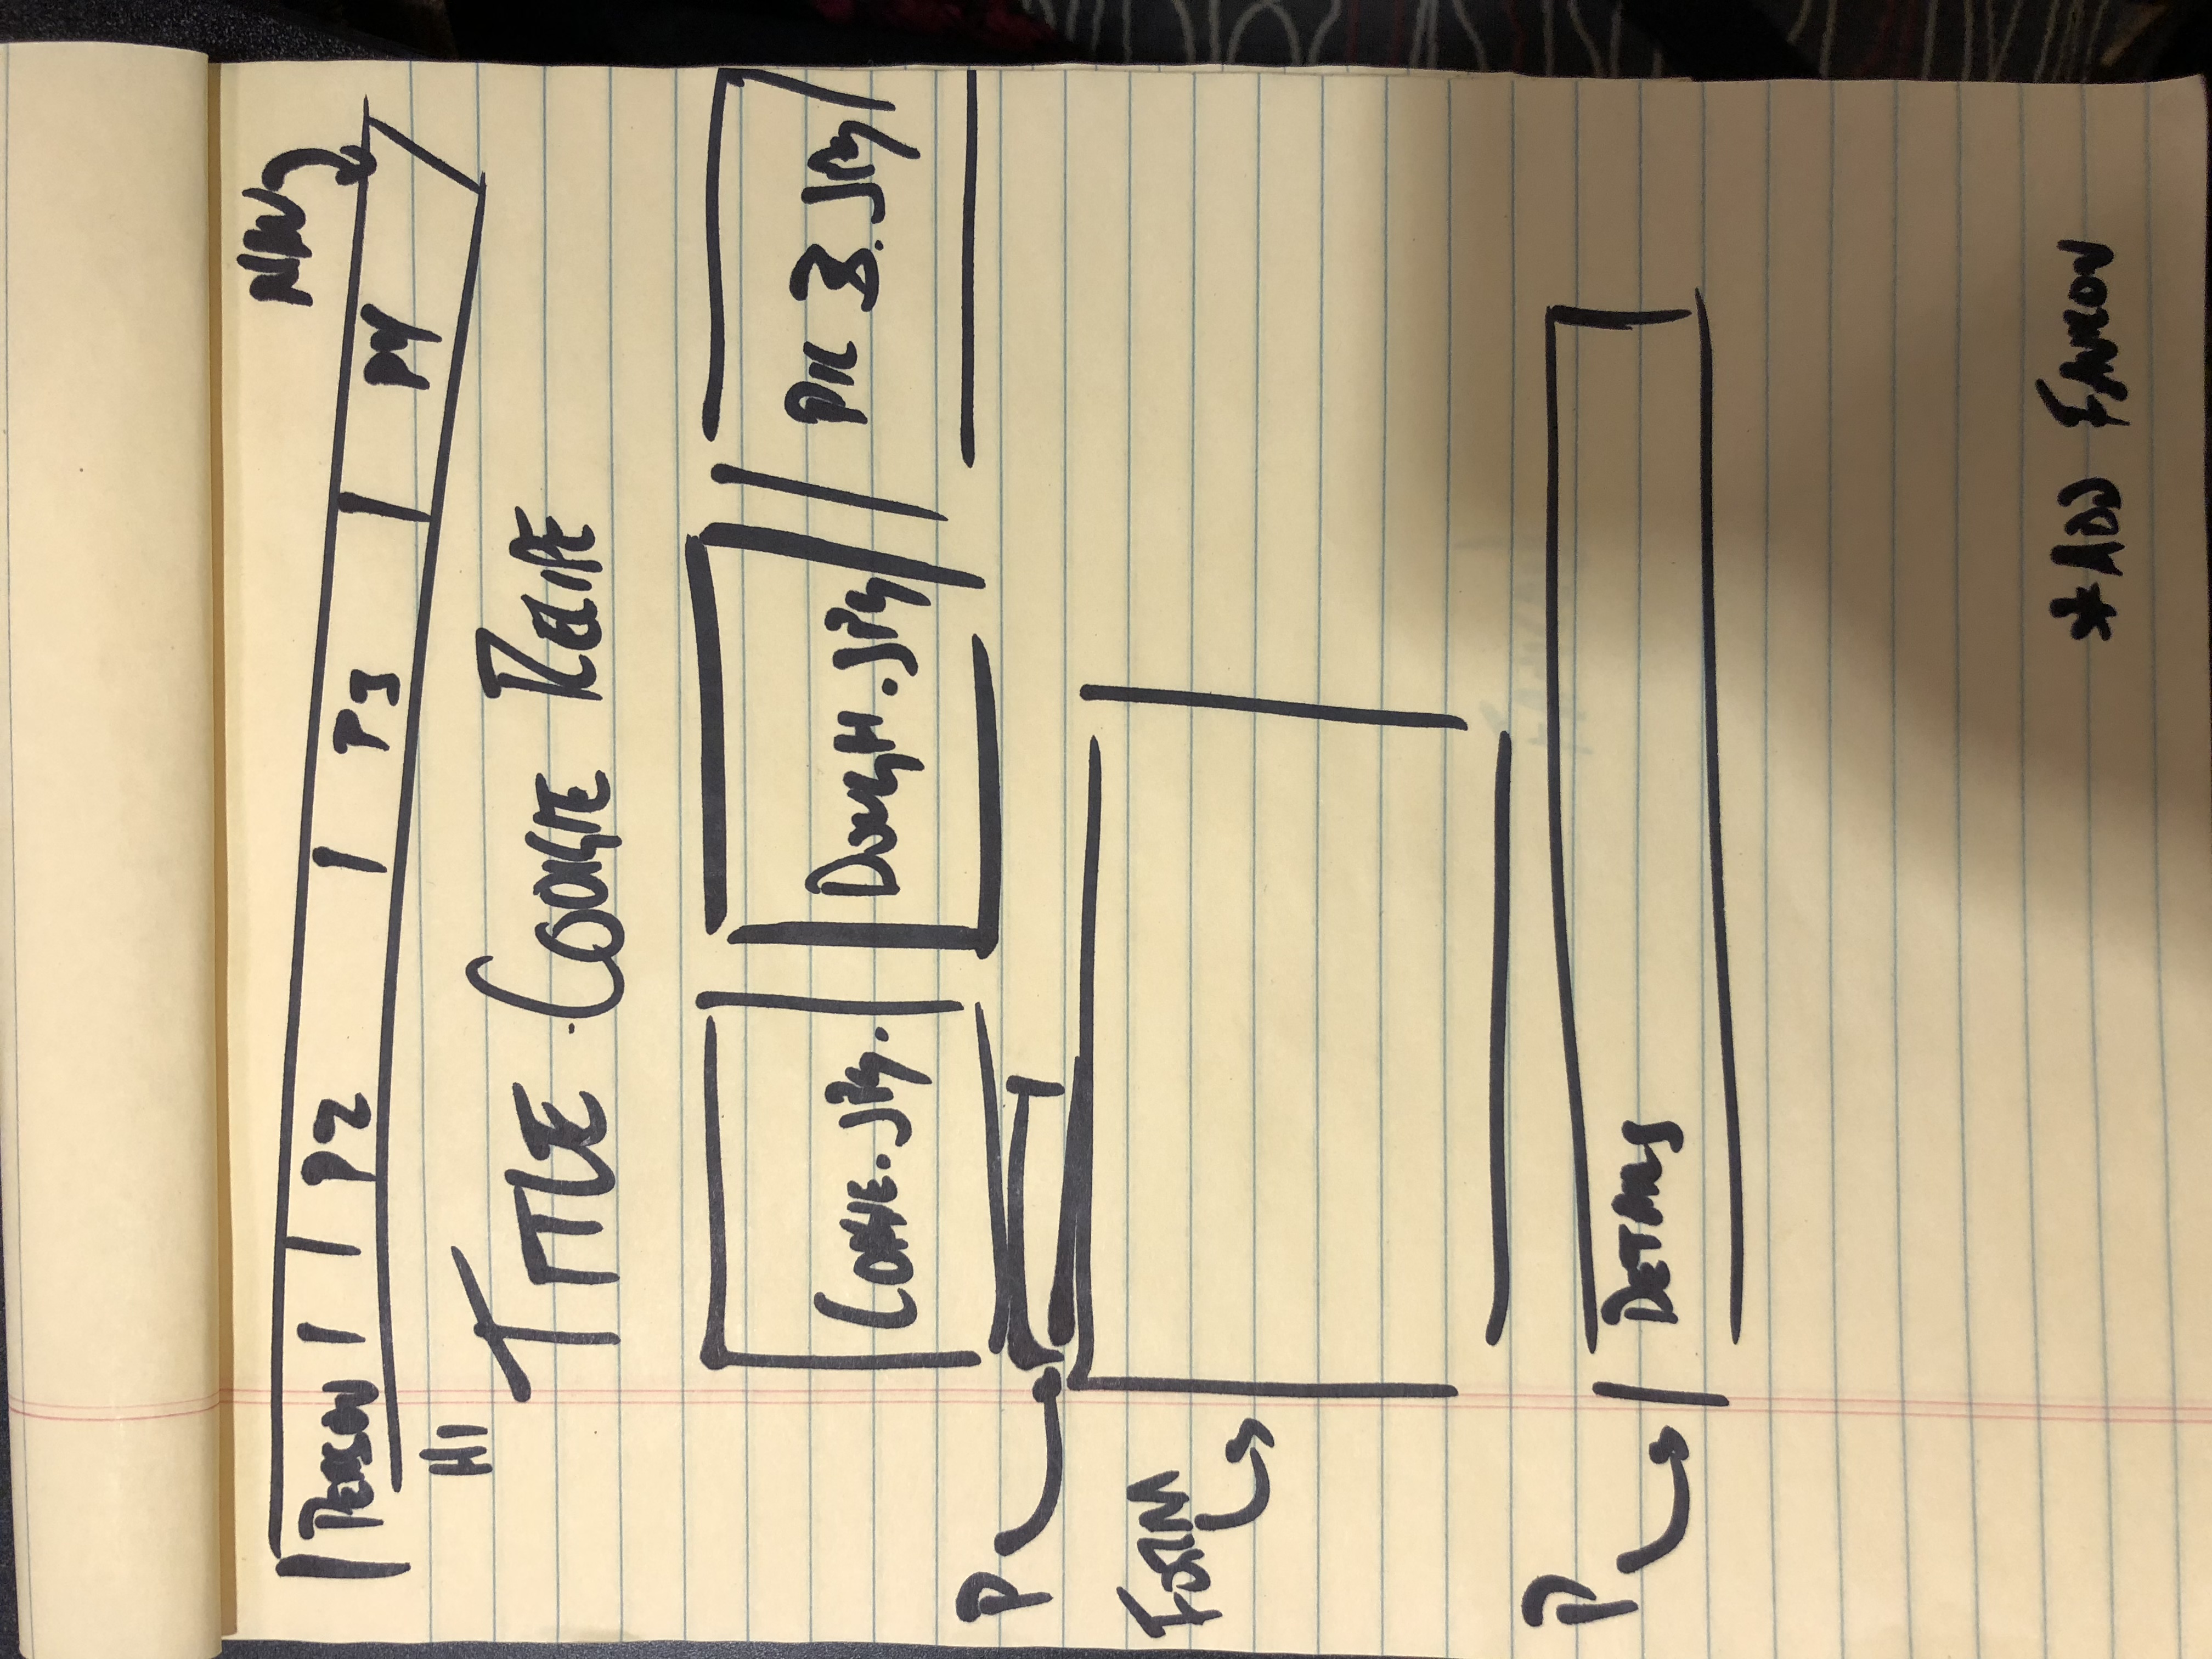 NAV
PERSON P2 P3 P4
H1
TITLE COOKIE RECIPE
COOKIE.JPG. DOUGH.JPG PIC 3.JPG
P
FORM
P
DETAILS
*ADD FAVICON